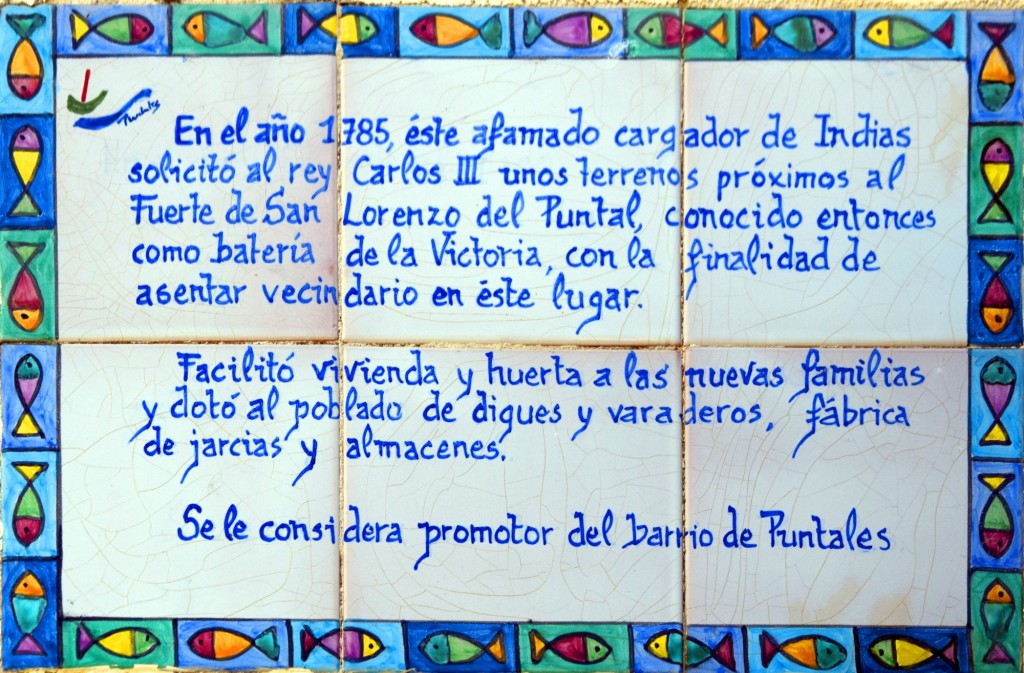 Puntales
En el año 1785, éste afamado cargador de Indias
solicitó al rey Carlos III unos terrenos próximos al
Fuerte de San Lorenzo del Puntal, conocido entonces
como batería de la Victoria, con la finalidad de
asentar vecindario en éste lugar.
Facilitó vivienda y huerta a las nuevas familias
y dotó al poblado de diques y varaderos, fábrica
de jarcias y almacenes.
Se le considera promotor del barrio de Puntales